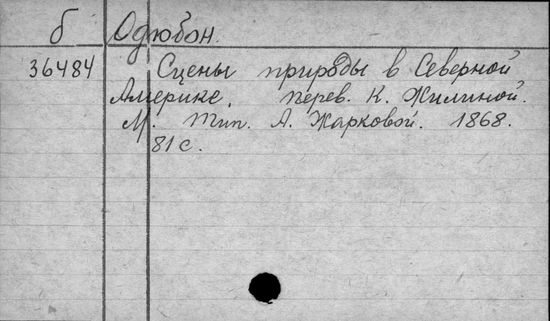 б Одюбон.
36484 Сцены природы в Северной
Америке. перев. К. Жилиной.
М. Тип. А. Жарковой. 1868.
81 с.